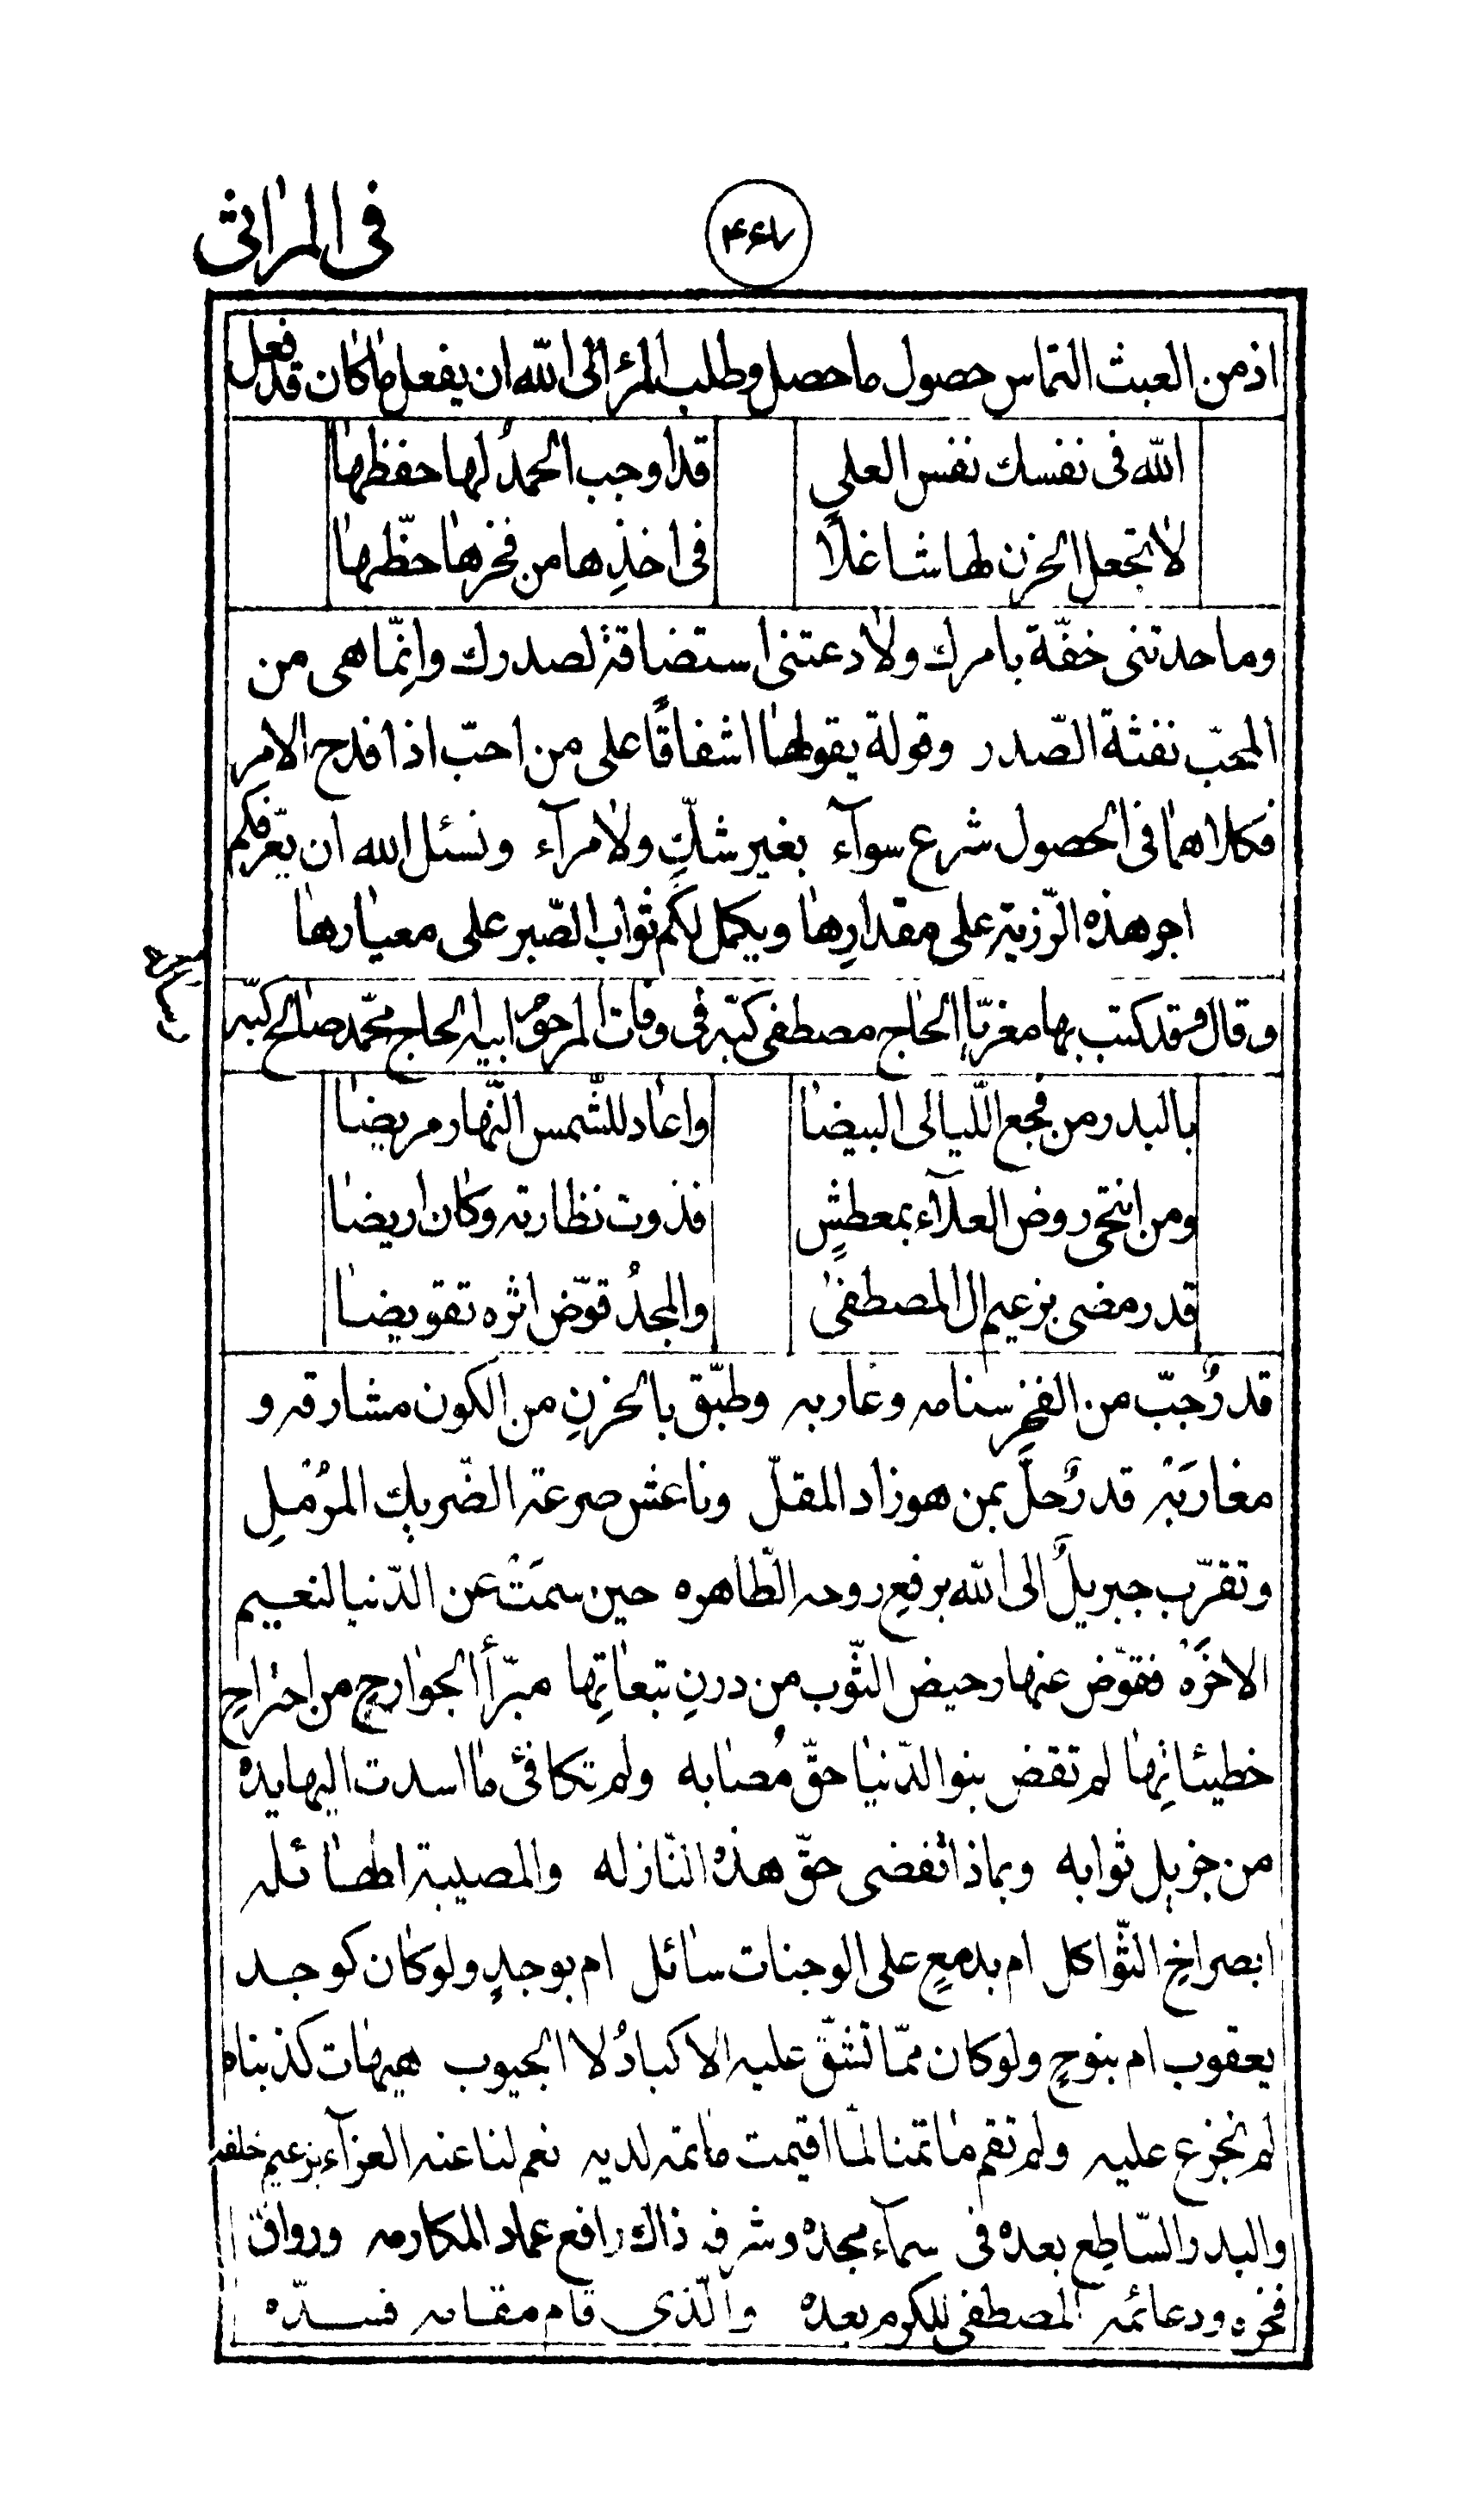 فى المراثى
۴۶۷
اذ من العبث التماس حصول ما حصل وطلب المرء الى اللّه ان يفعل ما كان قد فعل
اللّه فى نفسك نفس العلى قد اوجب الحمدُ لها حفظها
لا تجعل الحزن لها شاغلًا فى اخذِها من فخرها حظّها
وما حدتنى خفّة بامرك ولا دعتنى استضاقة لصدرك وانّما هى من
المحبّ نفثة الصّدر وقولة يقولها اشفاقًا على من احبّ اذا فدح الامر
فكلاهما فى الحصول شرع سوآء بغير شكّ ولا مرآء ونسئل الله ان يعرّفكم
اجر هذه الرّزية على مقدارِها ويكمل لكم ثواب الصّبر على معيارها
وقال وقد كتب بها معزّيا الحاج مصطفى كبّه فى وفات المرحوم ابيه الحاج محمّد صالح كبّه
بالبدر من فجع اللّيالى البيضا واعاد للشّمس النّهار مريضا
ومن انتحى روض العلآء بمعطشٍ فذوت نظارته وكان اريضا
قدر مضى بزعيم ال المصطفى والمجدُ قوّض اثره تقويضا
قدرٌ جبّ من الفخرِ سنامه وغاربه وطبّق بالحزنِ من الكون مشارقه و
مغاربَه قدرٌ حلّ بمن هو زاد المقلّ وناعش صرعة الضّريك المرُمْلِ
وتقرّب جبريلُ الى اللّه برفعِ روحه الطّاهره حين سمَتْ عن الدّنيا لنعيم
الاخَره فقوّض عنها رحيض الثّوب من درنِ تبعاتِها مبرّأ الجوارحِ من اجتراحِ
خطيئاتِها لم تقض بنو الدّنيا حقّ مُصابه ولم تكافئ ما اسدت اليها يده
من جزيل ثوابه وبماذا تفضى حقّ هذه النّازله والمصيبة الهائله
ابصراخِ الثّواكل ام بدمعٍ على الوجنات سائل ام بوجدٍ ولو كان كوجد
يعقوب ام بنوحٍ ولو كان ممّا تشقّ عليه الاكبادُ لا الجيوب هيهات كذبناه
لم نجزع عليه ولم تقم ماتمنا لمّا اقيمت ماتمه لديه نعم لنا عنه العزآء بزعيم خلفه
والبدر السّاطع بعده فى سمآء مجده وشرفه ذاك رافع عماد المكارمه ورواق
فخره ودعائمه المصطفى للكرم بعده والّذى قام مقامه فسدّه